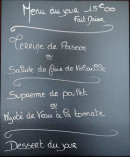 Menu du jour 15€00
Fait Maison
Terrine de Poisson
ou
Salade de foie de Volaille
Suprême de poulet
ou
Mijoté de Veau à la tomate
Dessert du jour